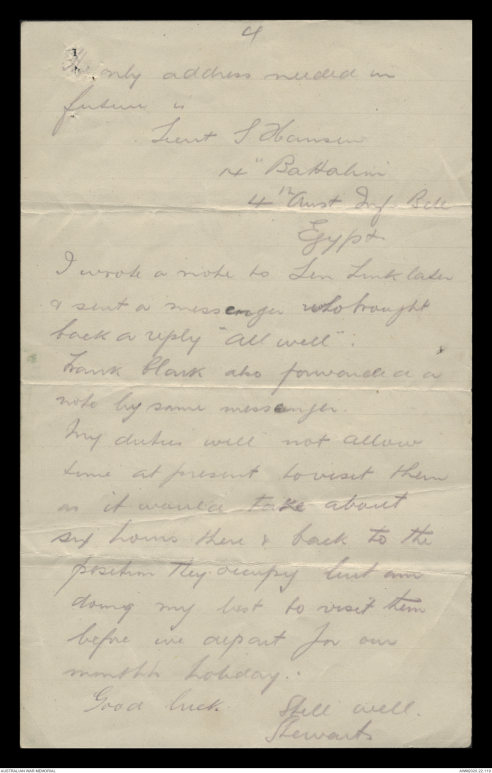 4
The only address needed in
future is
Lieut S Hansen
14" Battalion
4th Aust Inf Bde
Egypt
I wrote a note to Len Link later
& sent a messenger who brought
back a reply "All well".
Frank Clark also forwarded a
note by same messenger.
My duties will not allow
time at present to visit them
as it would take about
six hours there & back to the
position they occupy but am
doing my best to visit them
before we depart for our
month's holiday.
Good luck Still well.
Stewart
AUSTRALIAN WAR MEMORIAL